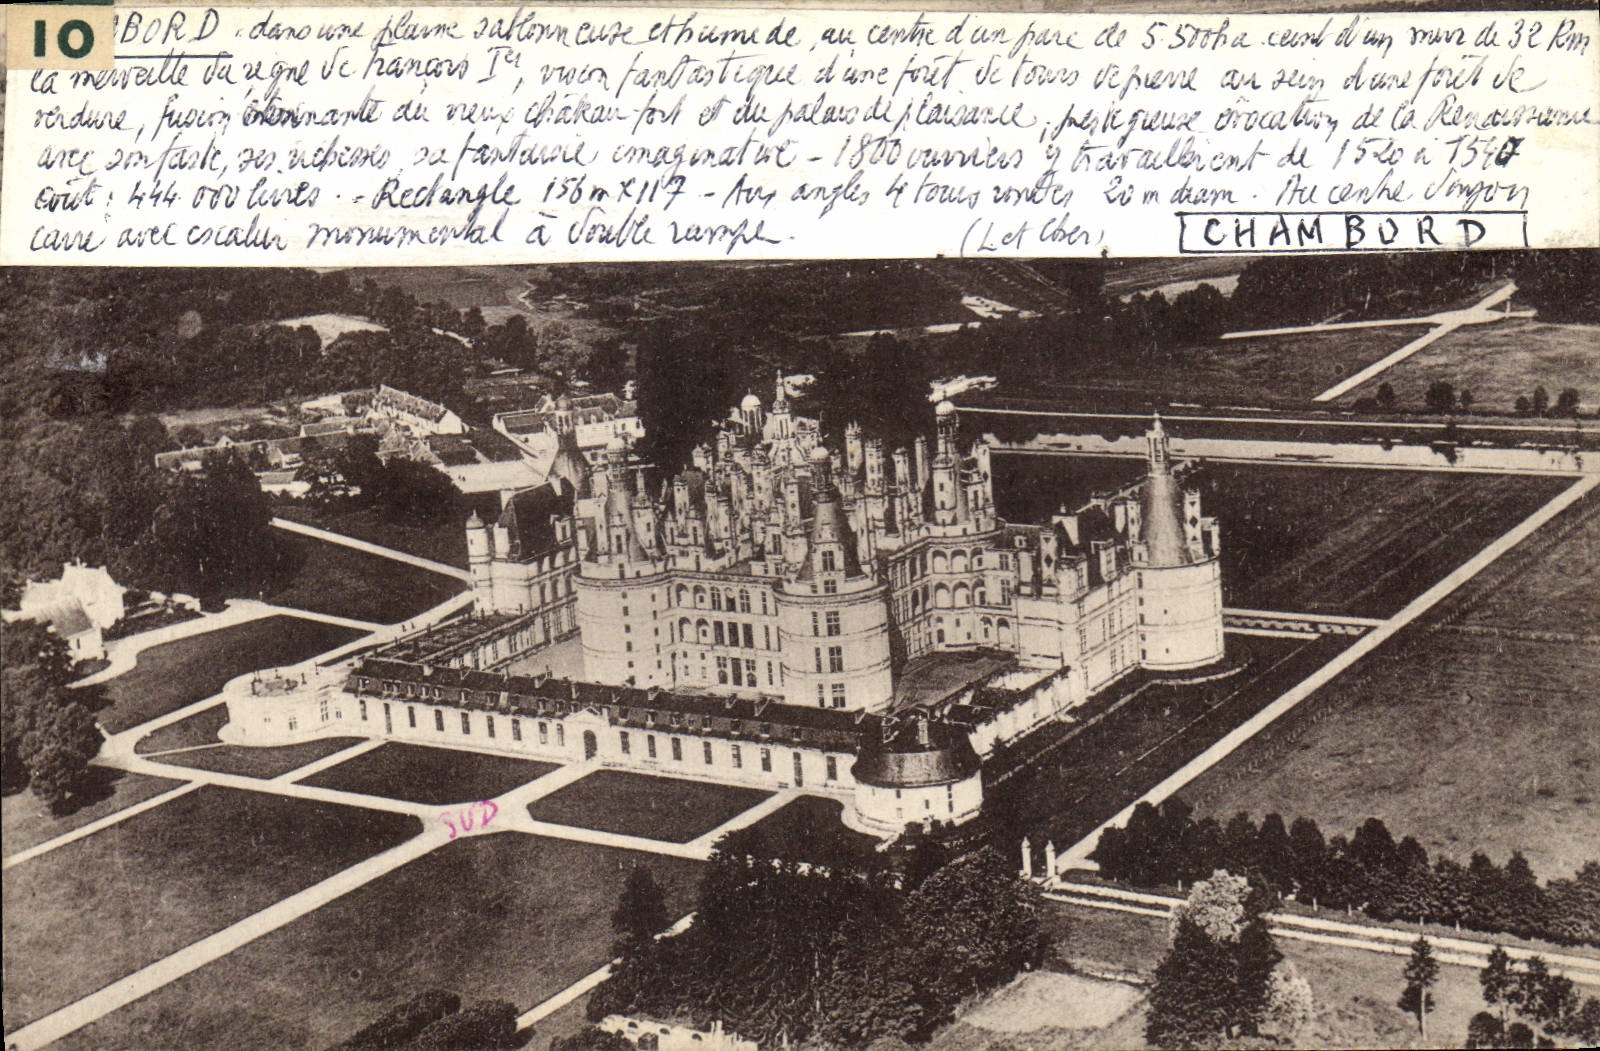 10 BORD. dans une plaine sablonneuse et humide, au centre d'un parc de 5.500 ha ceint d'un mur de 32 Km
la merveille du règne de François Ier, vision fantastique d'une forêt de tours de pierre au sein d'une forêt de
verdure, fusion du vieux château-fort et du palais de plaisance, prestigieuse évocation de la Renaissance
avec son faste, ses richesses, sa fantaisie imaginative - 1800 ouvriers y travaillèrent de 1520 à
coût : 444.000 livres. - Rectangle 156 m x 117 - Aux angles 4 tours rondes 20 m diam. Au centre donjon
carré avec escalier monumental à double rampe. (L et Cher) CHAMBORD
SUD